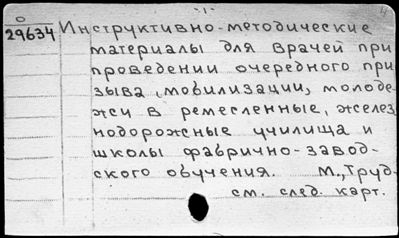 -1-
О
29634 Инструктивно-методические
материалы для врачей при
проведении очередного при
зыва (мобилизации) молоде
жи в ремесленные, желез
нодорожные училища и
школы фабрично-завод-
ского обучения. М., Труд-
см. след. карт.